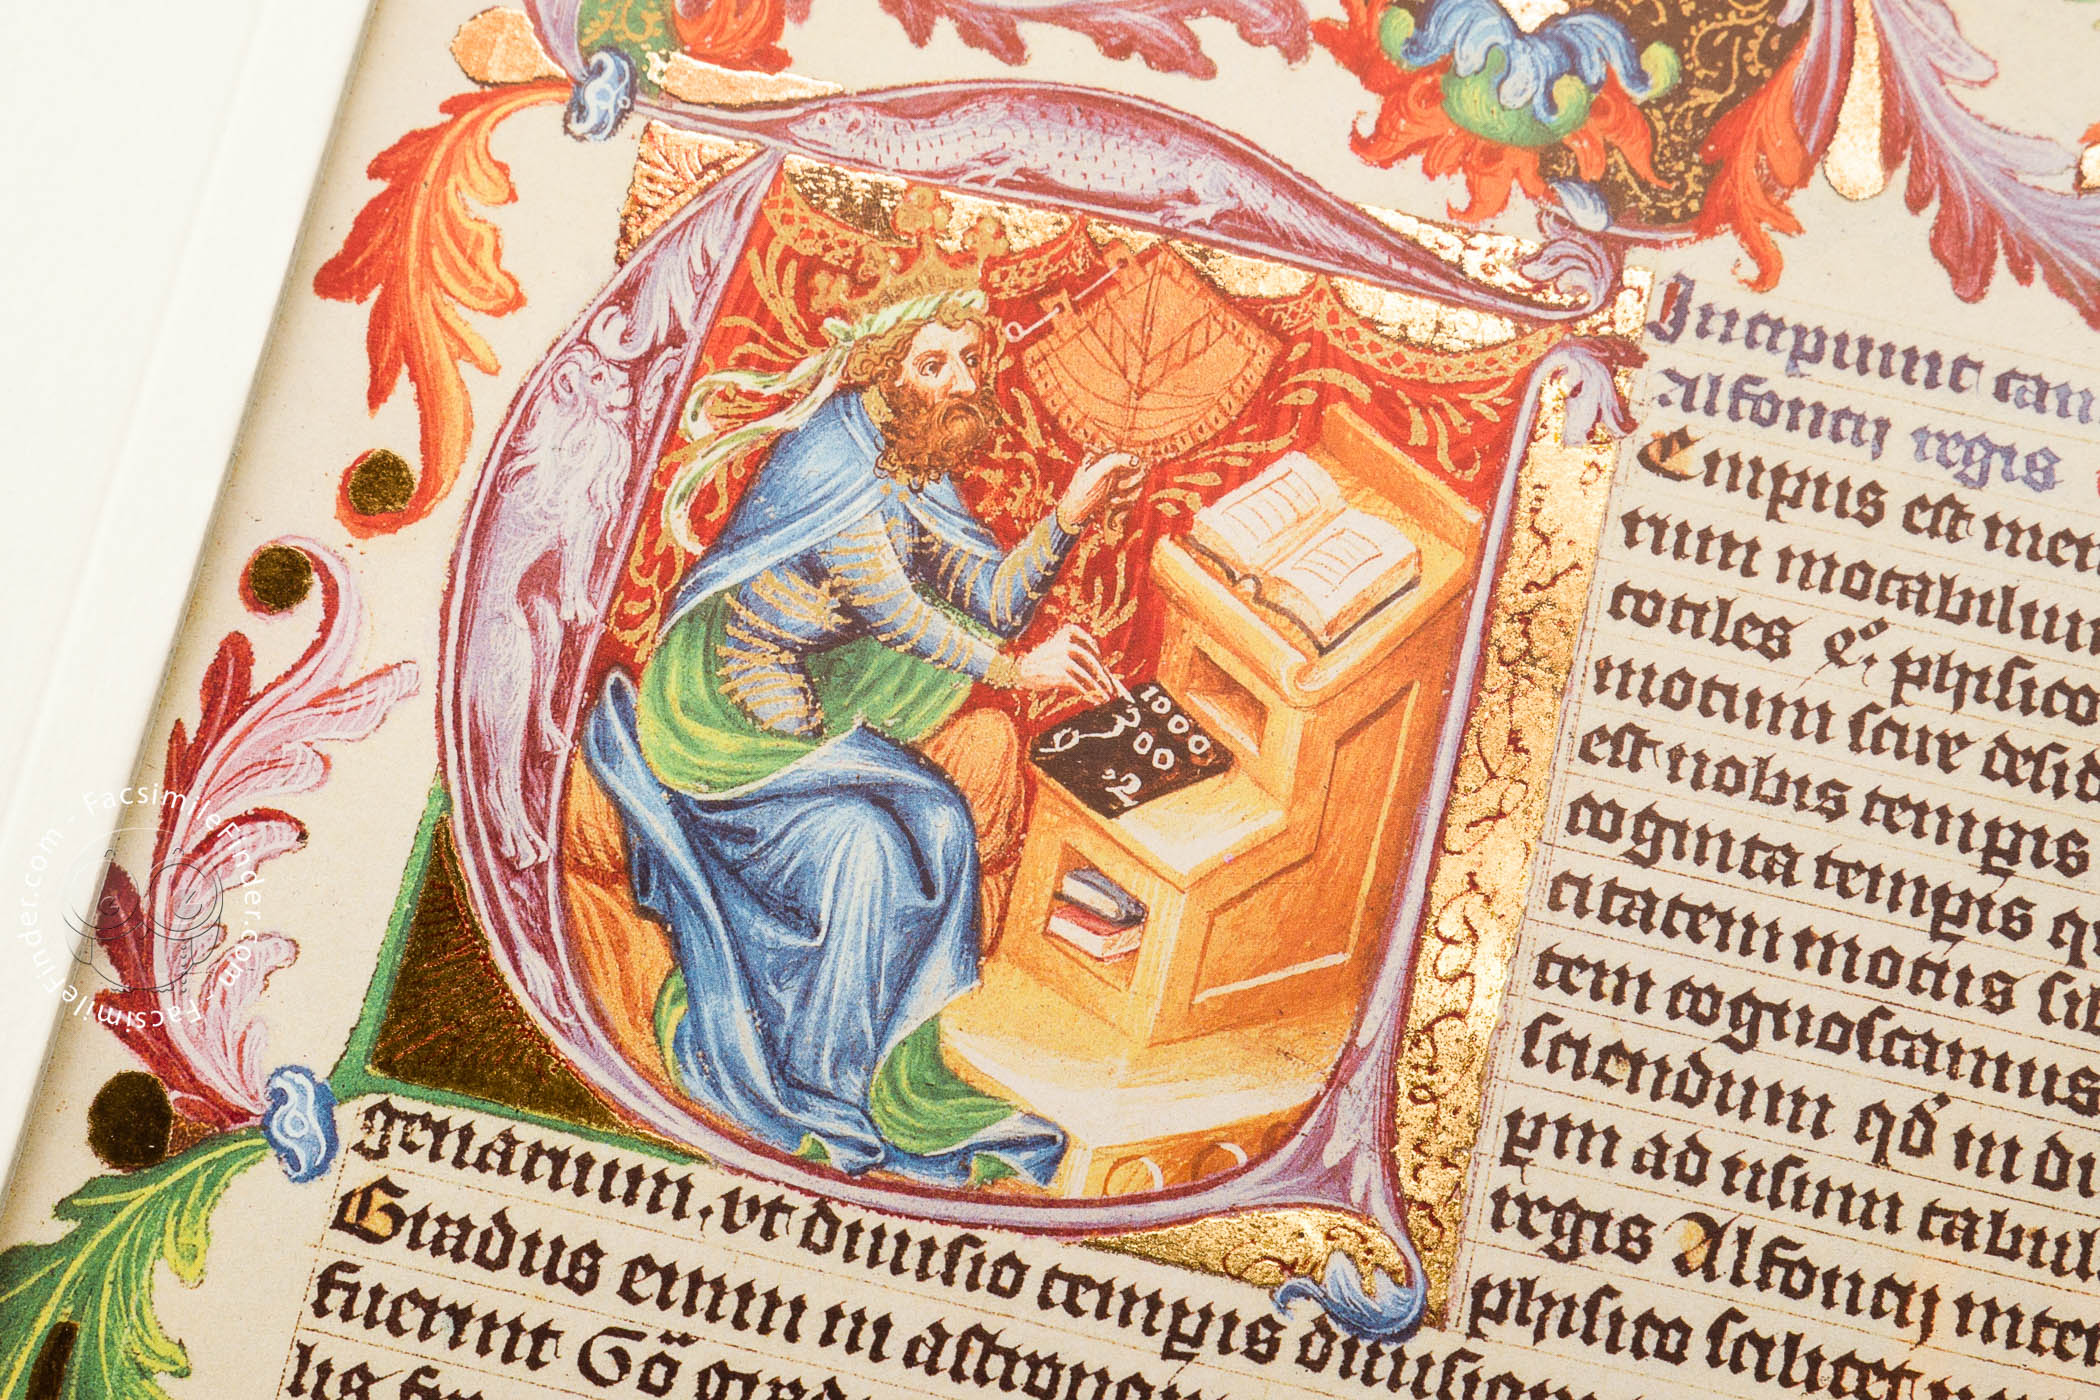 Incipiunt can
Alfoncij regis
Empus est men
rum motabilium
cociles
motum scire desid
est nobis tempis
cognita tempis q
citatem motus
tem cognoscamus
sciendum qđ in di
pm ad usum tabul
regis Alfoncij inte
phisico scilicet
genarium, vt diuisio tempis diuision
Gradus enim in astrono
fuerunt
1000
300
2
FacsimileFinder.com - FacsimileFinder.com -